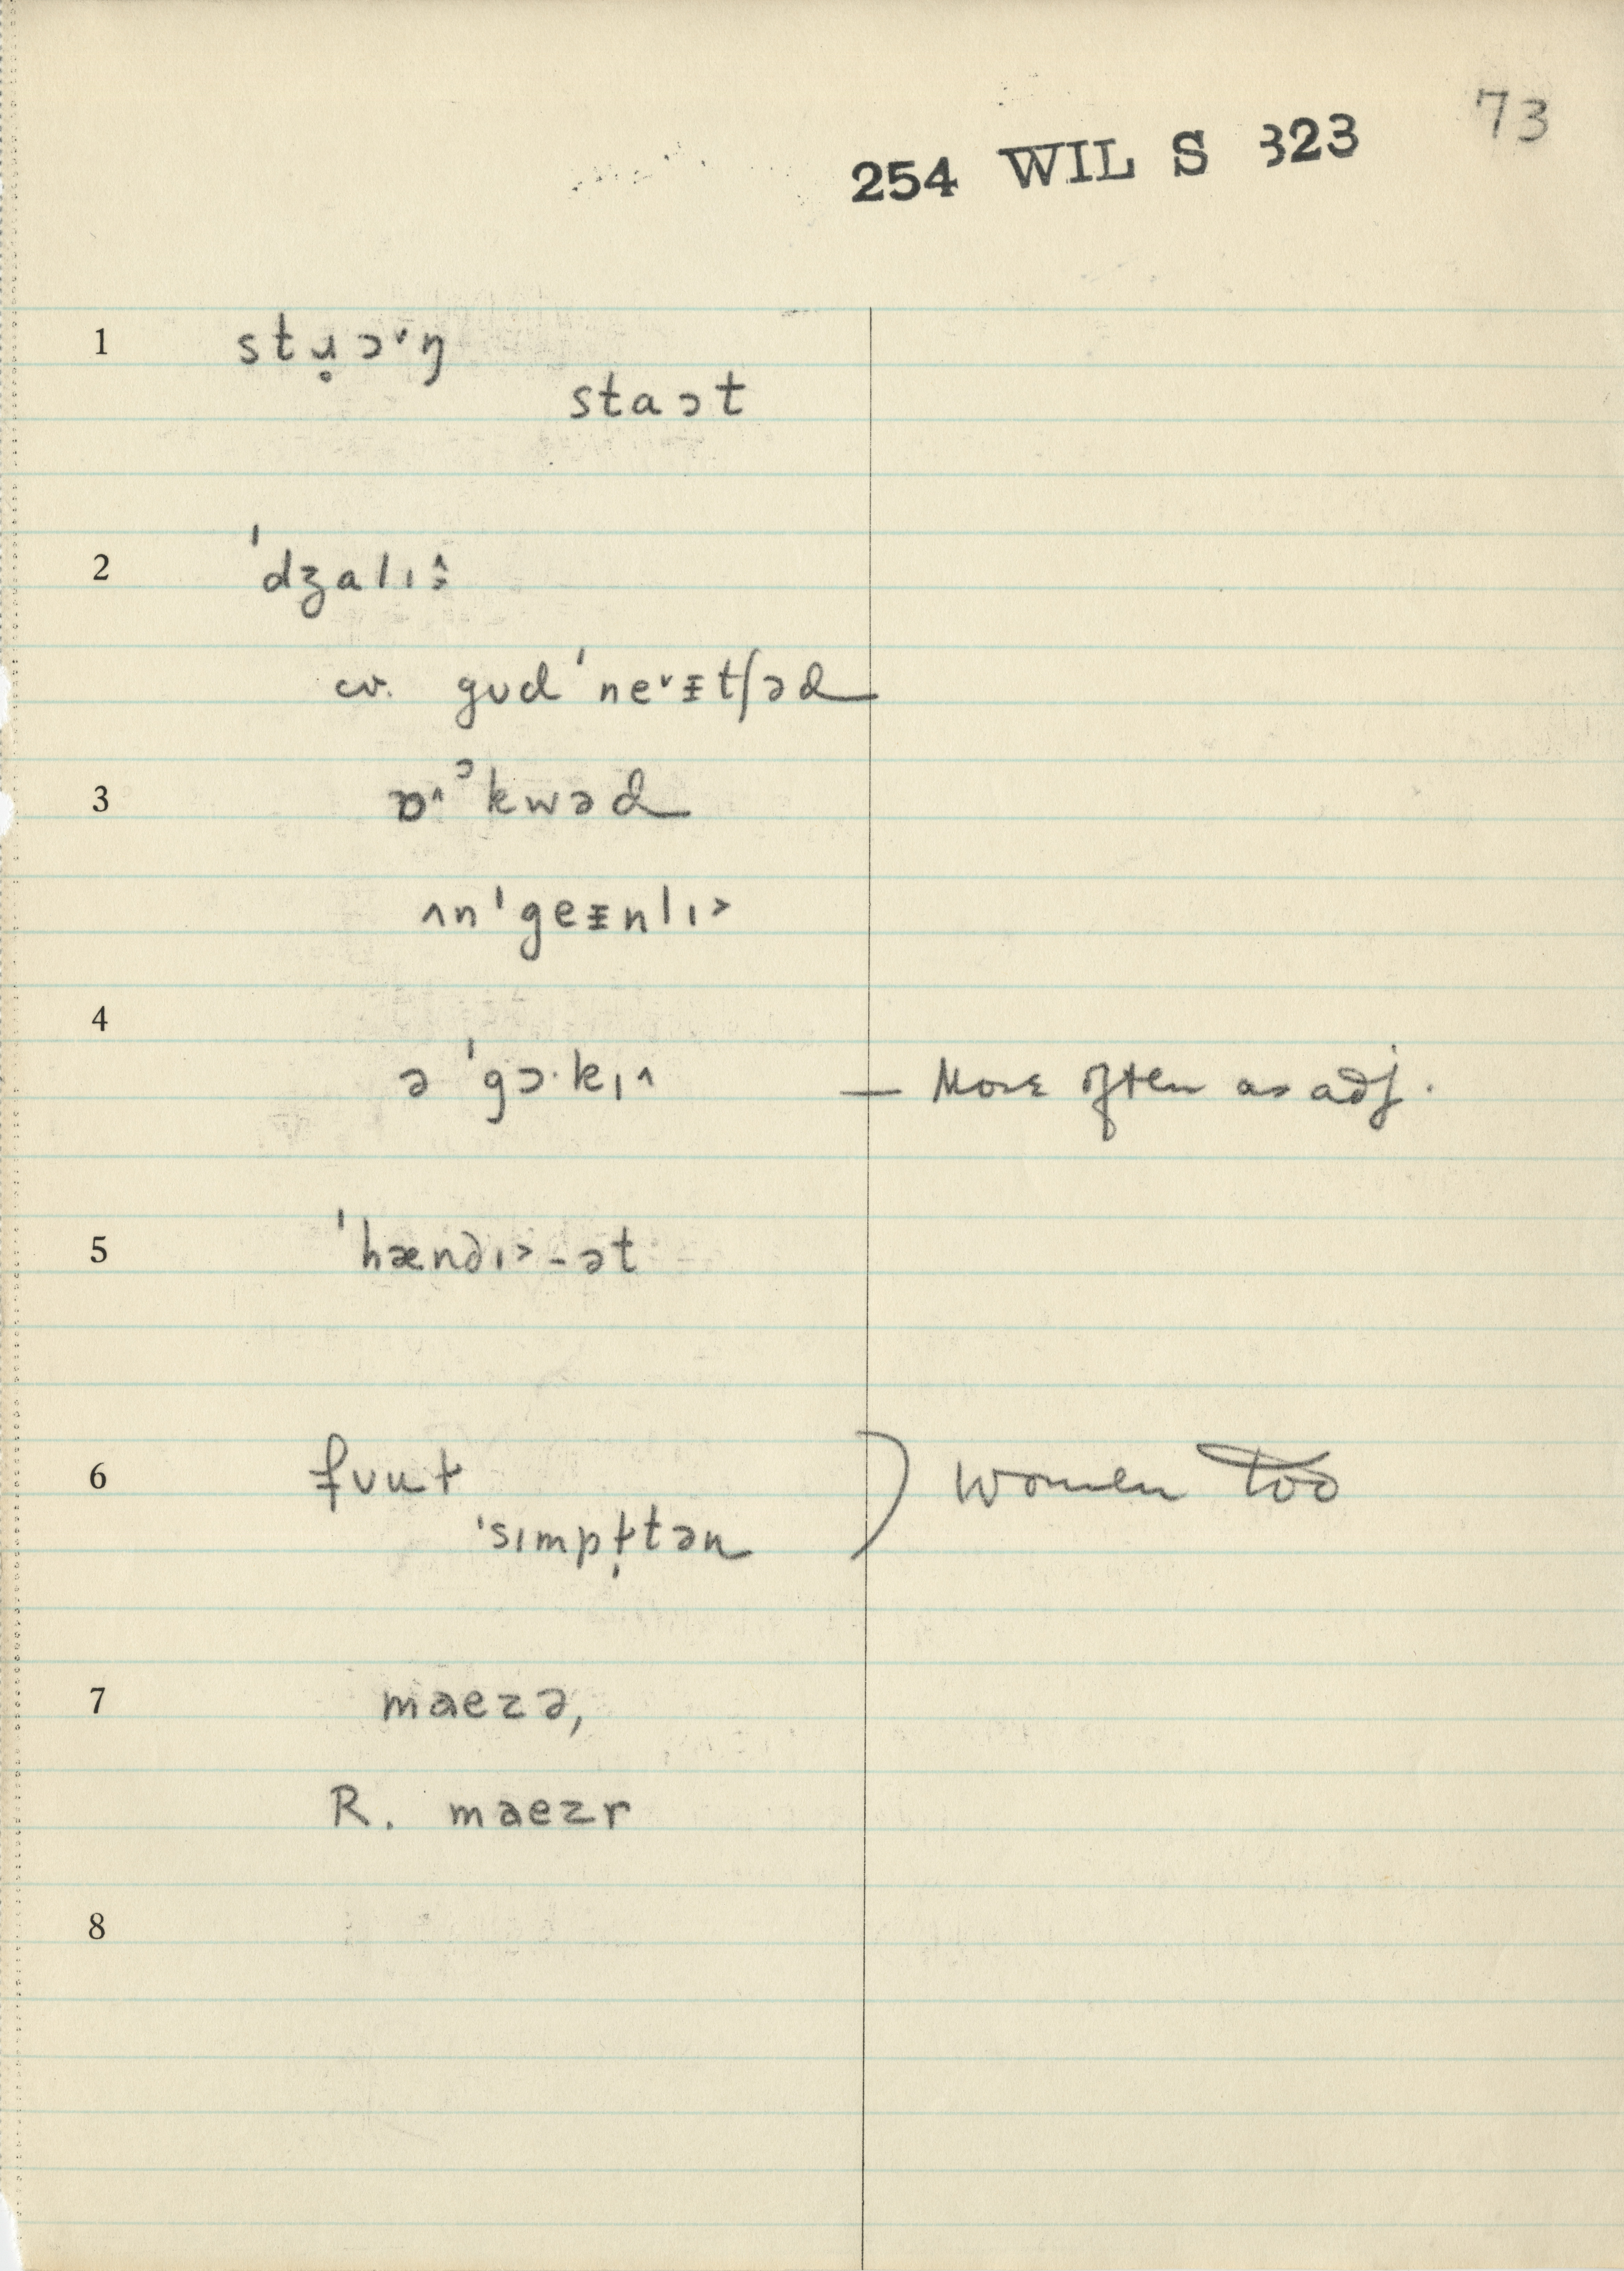 73
254 WIL S 323
1 stɹ̥ɔ˅ŋ
staɔt
2 ˈdʒalɪ
cv. gʊdˈne˅ɪtʃəd
3 ɒ^ɔkwəd
ʌnˈgeɪnlɪ˃
4
əˈgɔ·kɪ^ — More often as adj.
5 ˈhændɪ˃-ət
6 fʊuɫ ) women too
ˈsɪmpɫ̩tən
7 maezə,
R. maezr
8